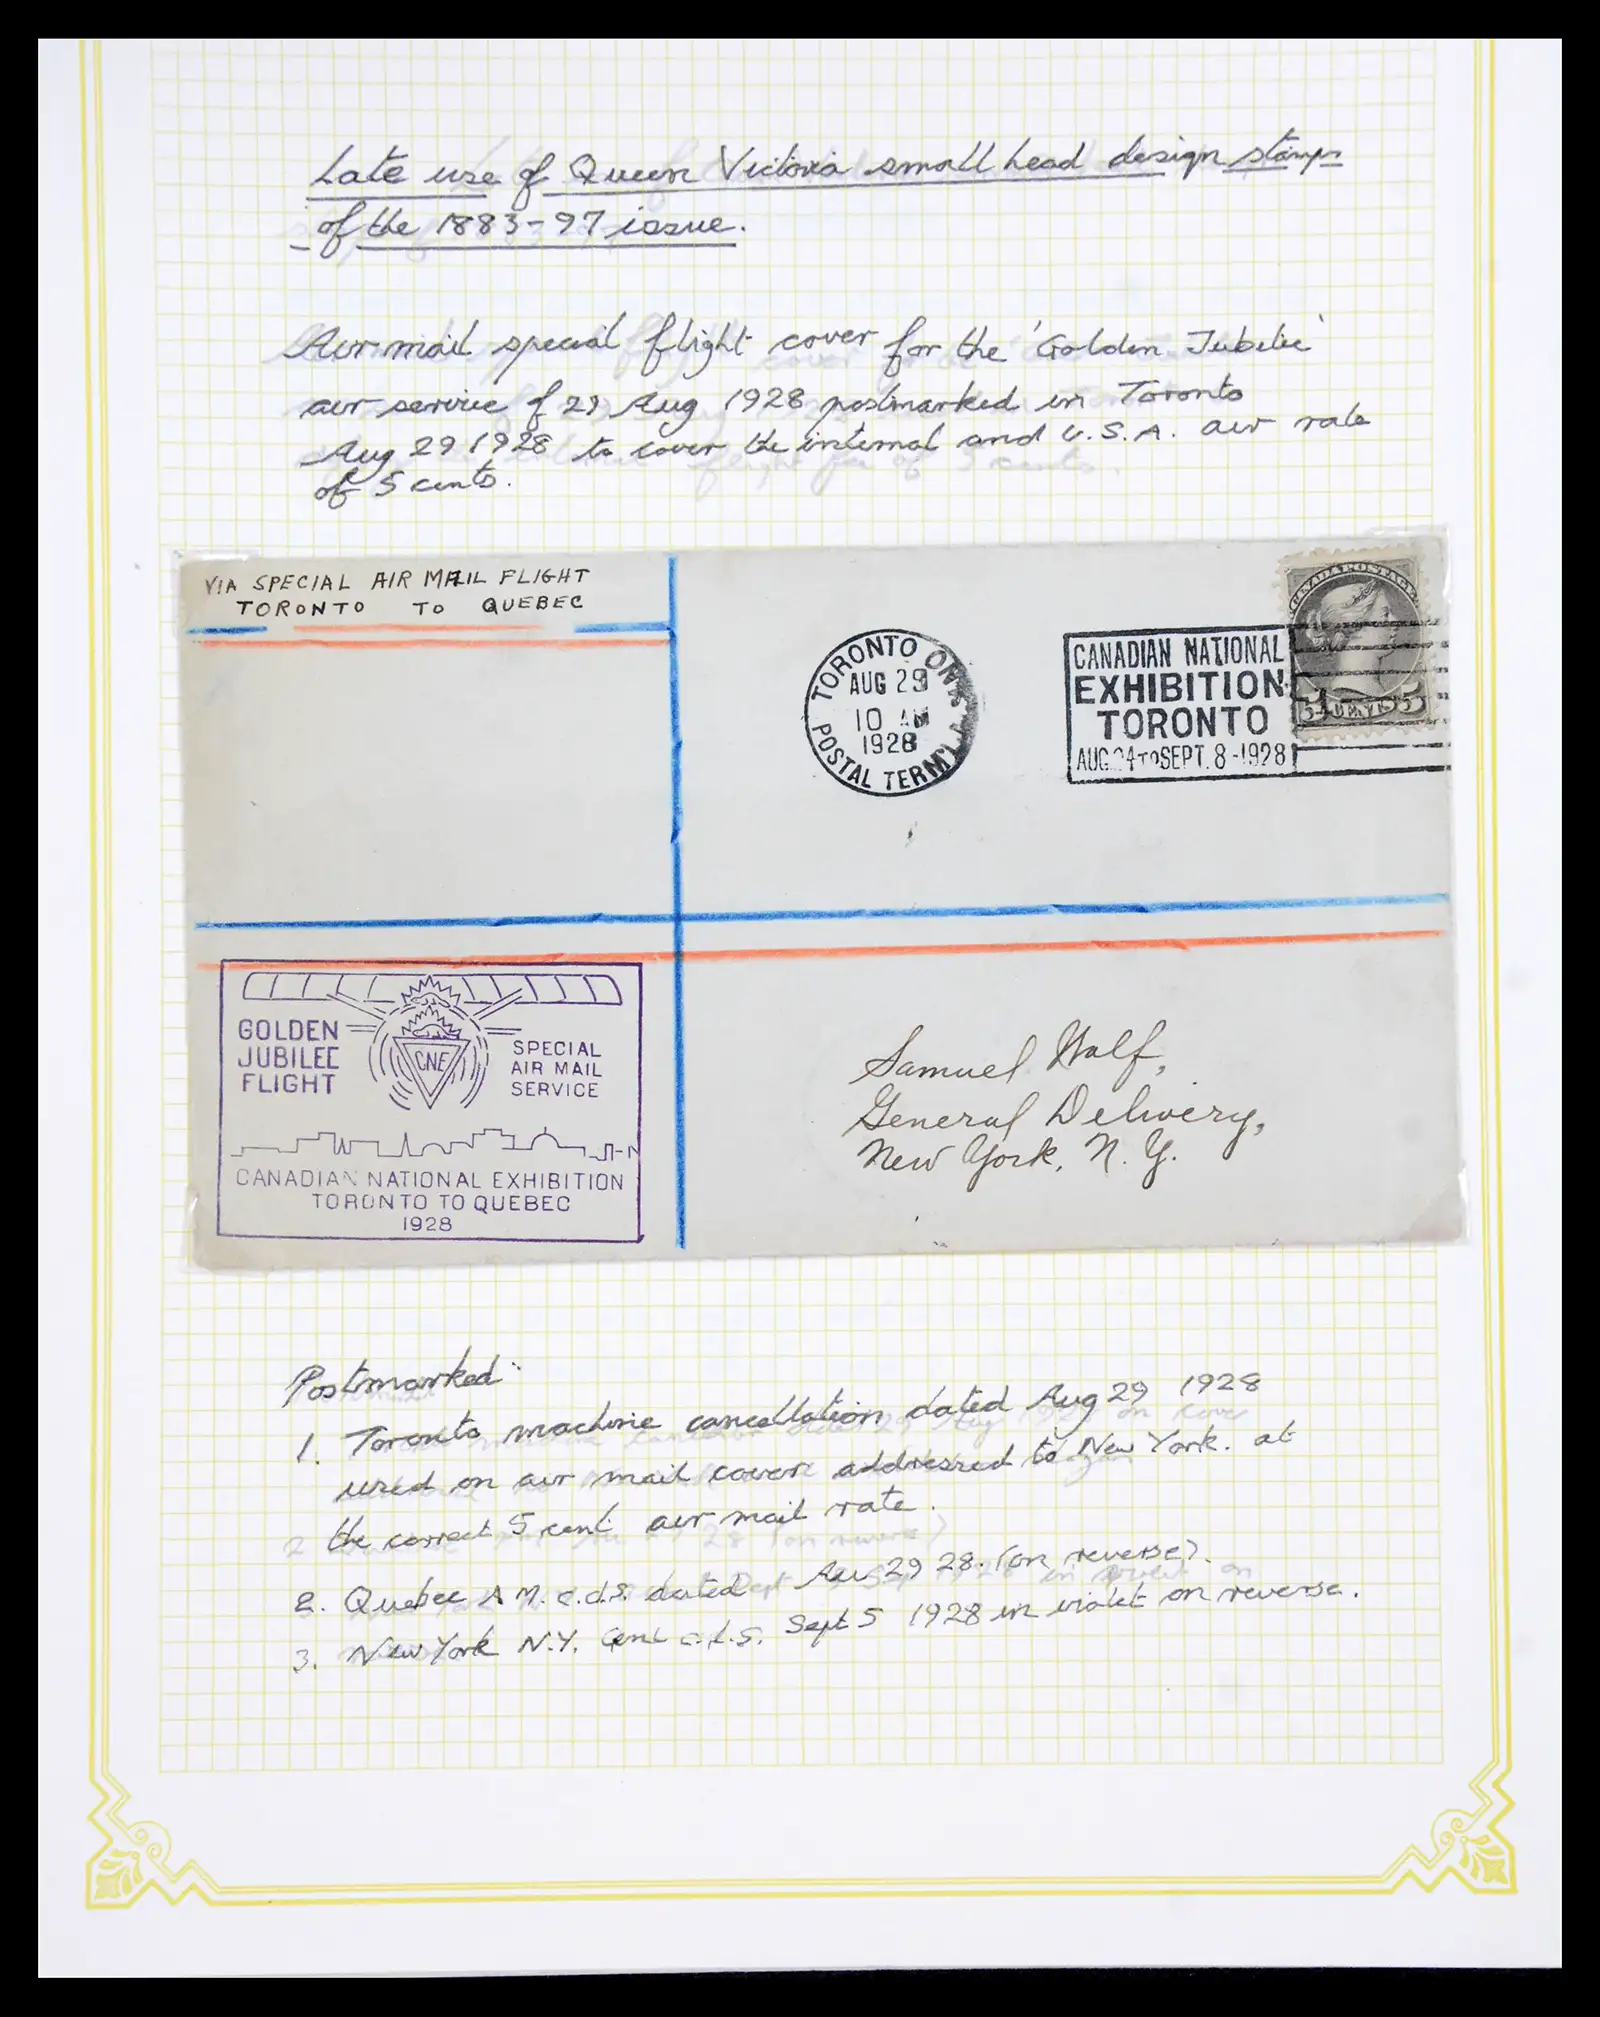 Late use of Queen Victoria small head design stamps
of the 1883-97 issue.
Air mail special flight cover for the 'Golden Jubilee'
air service of 29 Aug 1928 postmarked in Toronto
Aug 29 1928 to cover the internal and U.S.A. air rate
of 5 cents.
VIA SPECIAL AIR MAIL FLIGHT
TORONTO TO QUEBEC
CANADA POSTAGE
5 CENTS 5
TORONTO ONT.
AUG 29
10 AM
1928
POSTAL TERM'L A
CANADIAN NATIONAL
EXHIBITION
TORONTO
AUG. 24 TO SEPT. 8-1928
GOLDEN
JUBILEE
FLIGHT
CNE
SPECIAL
AIR MAIL
SERVICE
CANADIAN NATIONAL EXHIBITION
TORONTO TO QUEBEC
1928
Samuel Wolf,
General Delivery,
New York, N. Y.
Postmarked:
1. Toronto machine cancellation dated Aug 29 1928
used on air mail cover addressed to New York. at
the correct 5 cent air mail rate.
2. Quebec A M. c.d.s. dated Au 29 28. (on reverse).
3. New York N.Y. c.d.s. Sept 5 1928 in violet on reverse.